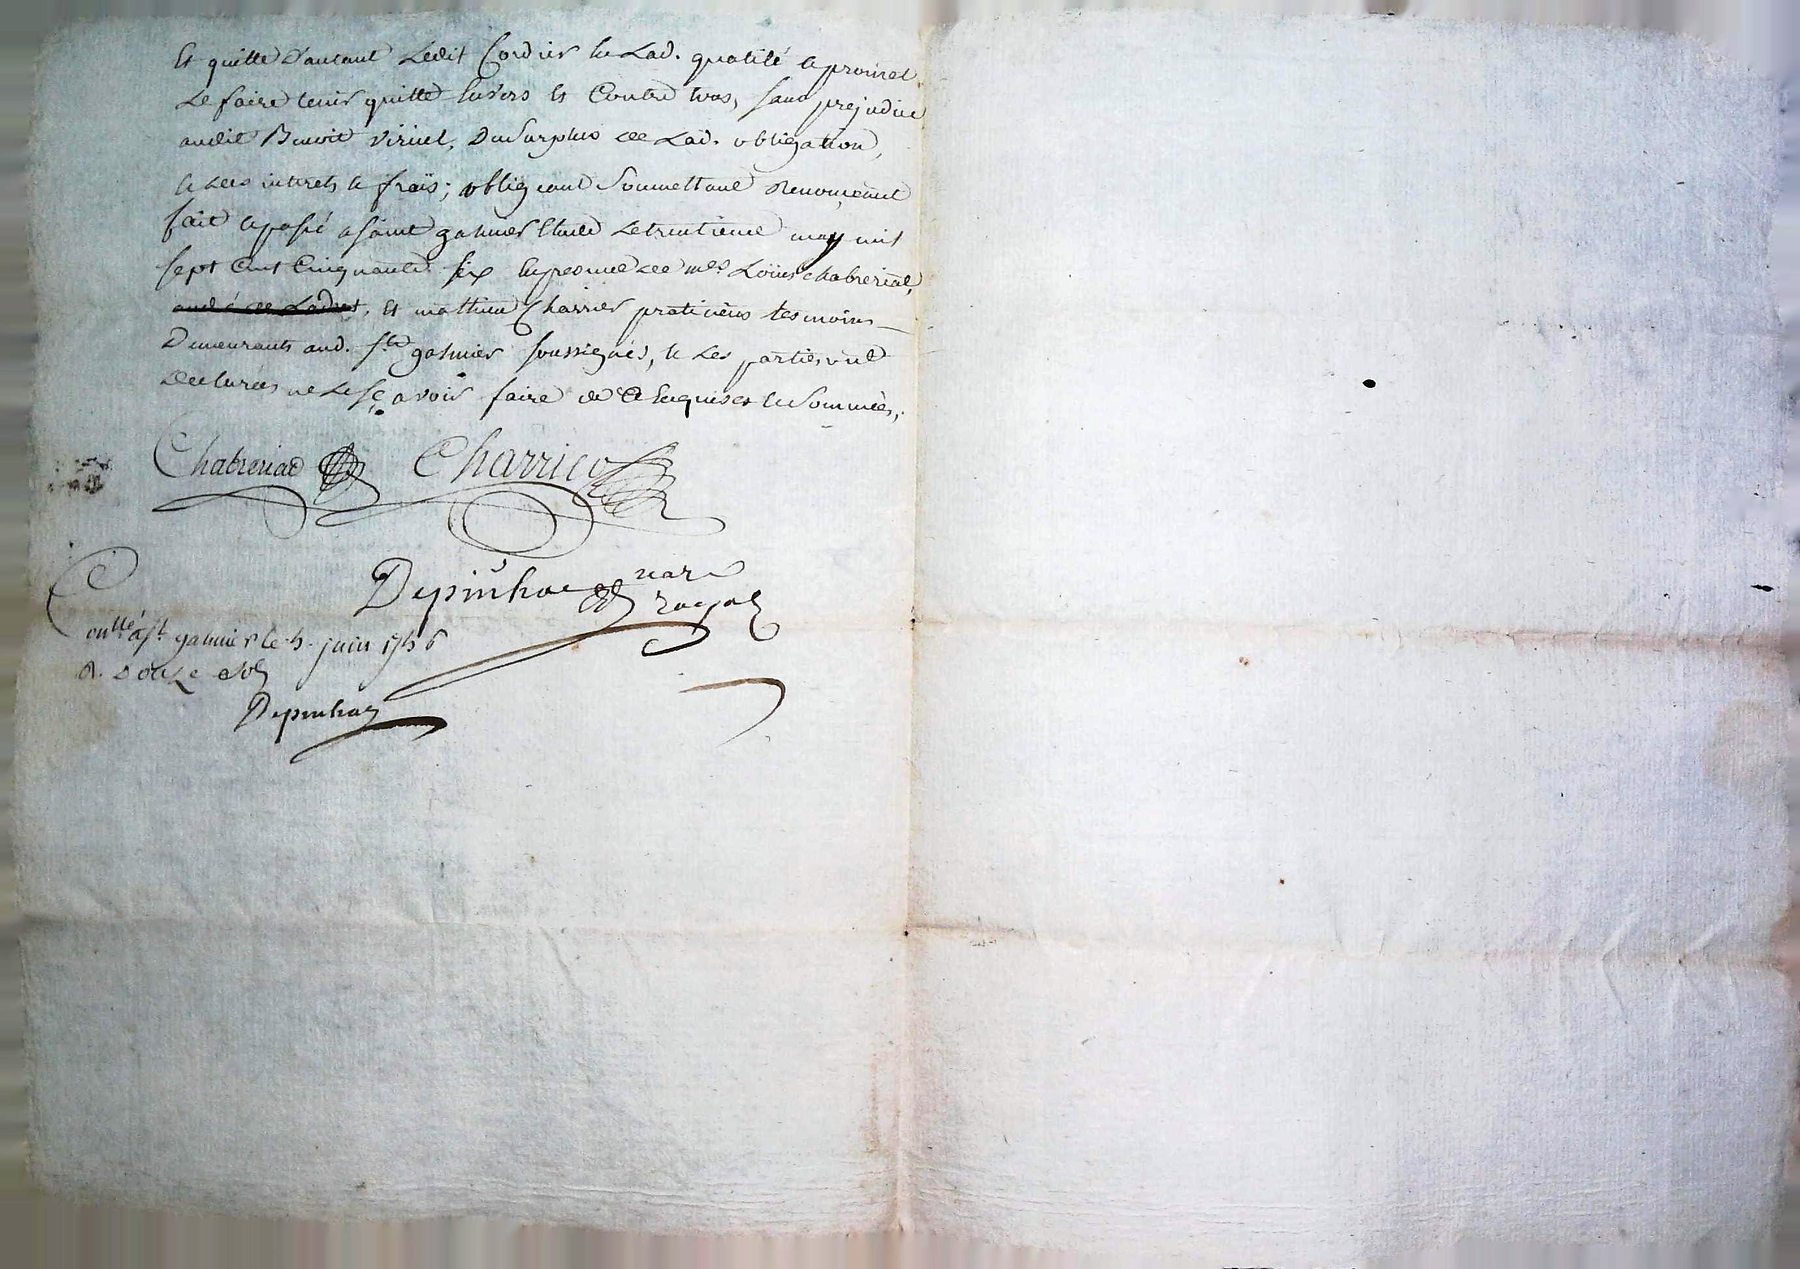 et quitte d'autant ledit Cordier en lad. qualité et promet
le faire tenir quitte envers et contre tous, sans prejudice
audit Benoit Viricel, du surplus de lad. obligation,
et des interets et frais; obligeant soumettant renonceant
fait et passé a saint galmier Etude le trentieme may mil
sept cent cinquante six en presence de mes Loüis chabreriat,
et mathieu Charrier praticiens tesmoins
Demeurants aud. st galmier soussignés, et les parties ont
declarées ne le sçavoir faire de ce enquises et sommées,
Chabreriat Charrier
Depinhac
notre
royal
Conllé a st galmier le 5. juin 1756
R. douze sols
Depinhac